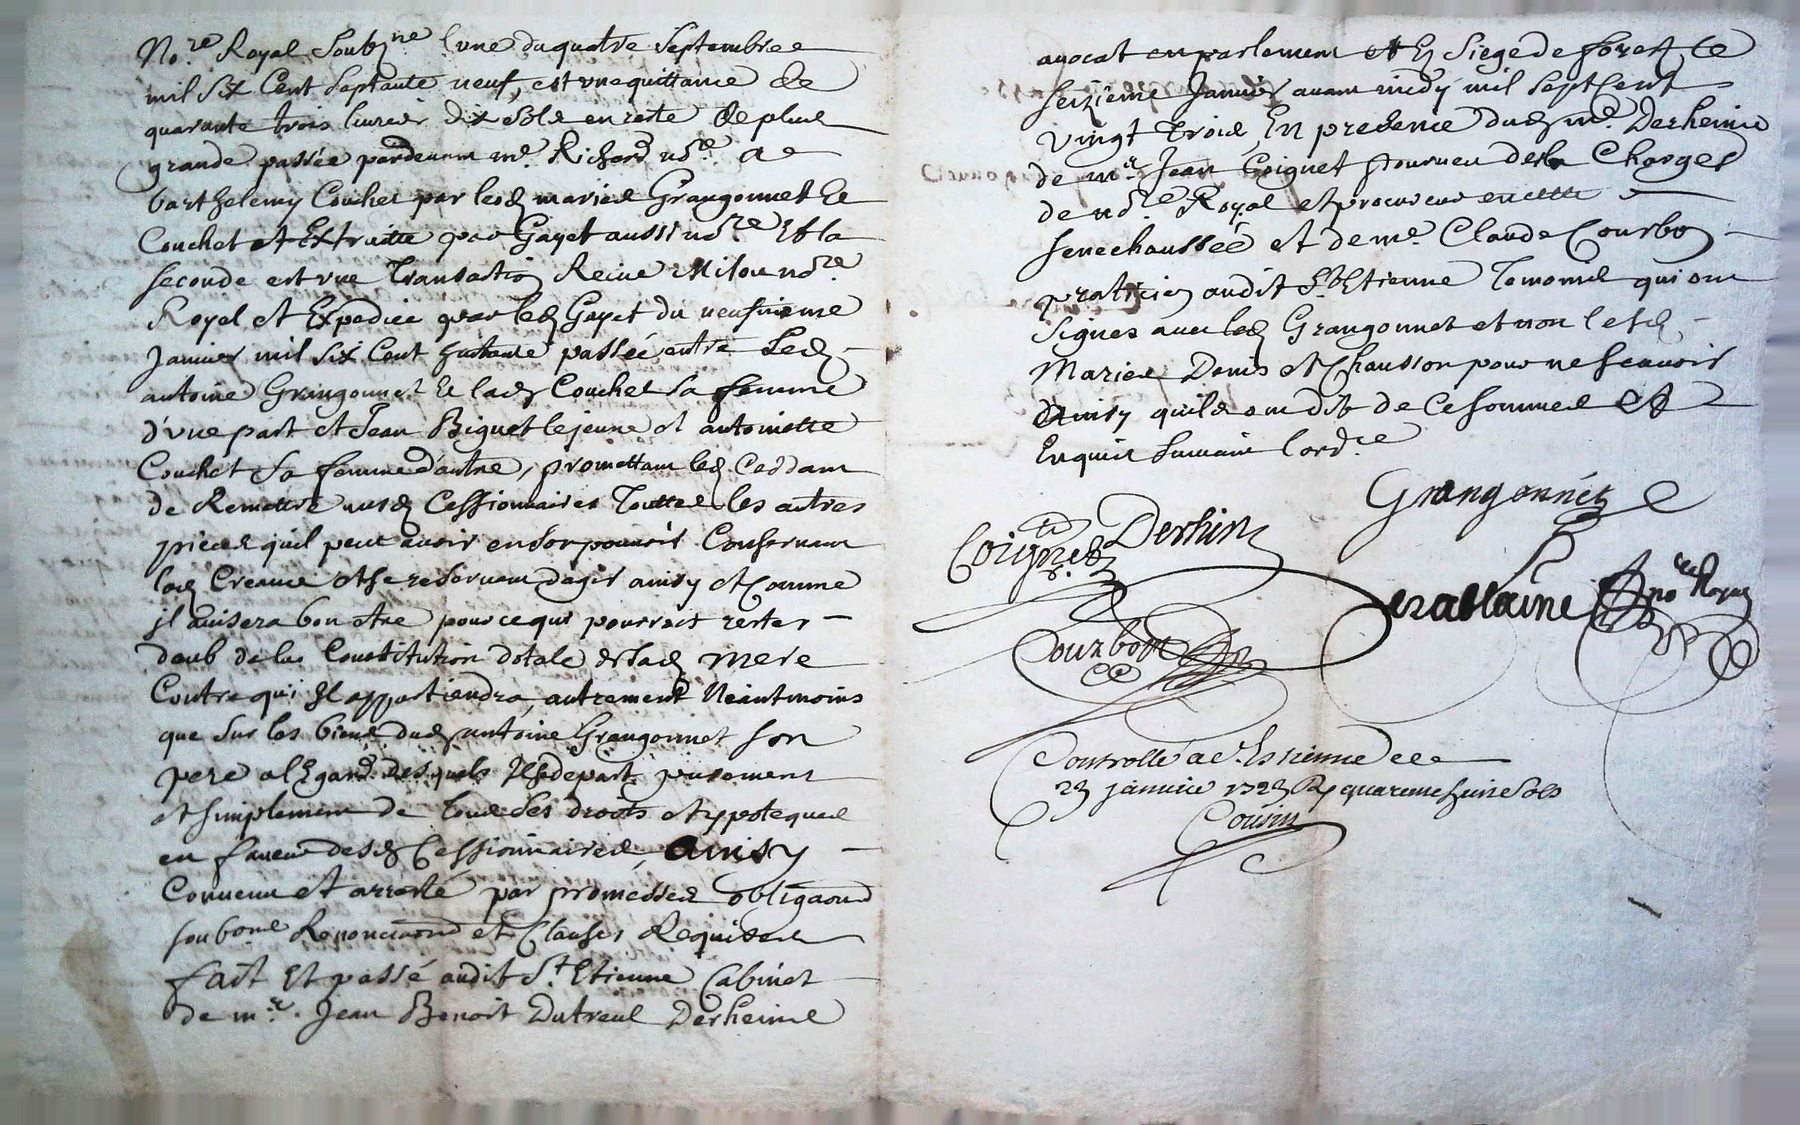 No.re Royal soubz.ne lune du quatre septembre
mil six Cent septante neuf, est une quittance de
quarante trois livres dix sols en reste de plus
grande passée pardevant me. Richard no.re a
barthelemy Couchet par lesd mariés Grangonnet et
Couchet et Extraitte par Gayet aussi no.re Et la
seconde est une Transaction Reçue no.re
Royal et Expediée par led Gayet du neufvieme
Janvier mil six Cent huitante passée entre led
antoine Grangonnet et lad Couchet sa femme
d'une part et Jean Biguet le jeune et antoinette
Couchet sa femme d'autre, promettant led. Ceddant
de Remettre ausd Cessionnaires Touttes les autres
pieces quil peut avoir en son pouvoir Concernant
lad Creance et se reservant dagir ainsy et Comme
il avisera bon etre pour ce qui pourroit rester
deub de la Constitution dotale de sad mere
Contre qui Il appartiendra, autrement Neantmoins
que sur les biens dud antoine Grangonnet son
pere a lEgard desquels Il se depart purement
et simplement de tous ses droots et ypoteques
en faveur desd Cessionnaires, ainsy
Convenu et arresté par promesses obligaons
soubone Renonciaons et Clauses Requises
fait Et passé audit St. Etienne Cabinet
de m.re Jean Benoit Dutreul Derheims
avocat en parlement et siege de forest le
seizieme Janvier avant midy mil sept Cent
vingt trois, En presence dud me. Derheims
de m.re Jean Coignet pourveu de la Charges
de no.re Royal et procureur en cette
senechaussée et de me. Claude Courbon
praticien audit St Etienne Temoins qui ont
signés avec led Grangonnet et non lesd
Mariés Denis et Chausson pour ne scavoir
ainsy quils ont dit de Ce sommés et
Enquis suivant lord.ce
Grangonnet
Coignet Derhins
no.re Royal
Courbon
Controllé a St. Estienne le
23 janvier 1723 R quarente huit sols
Cousin